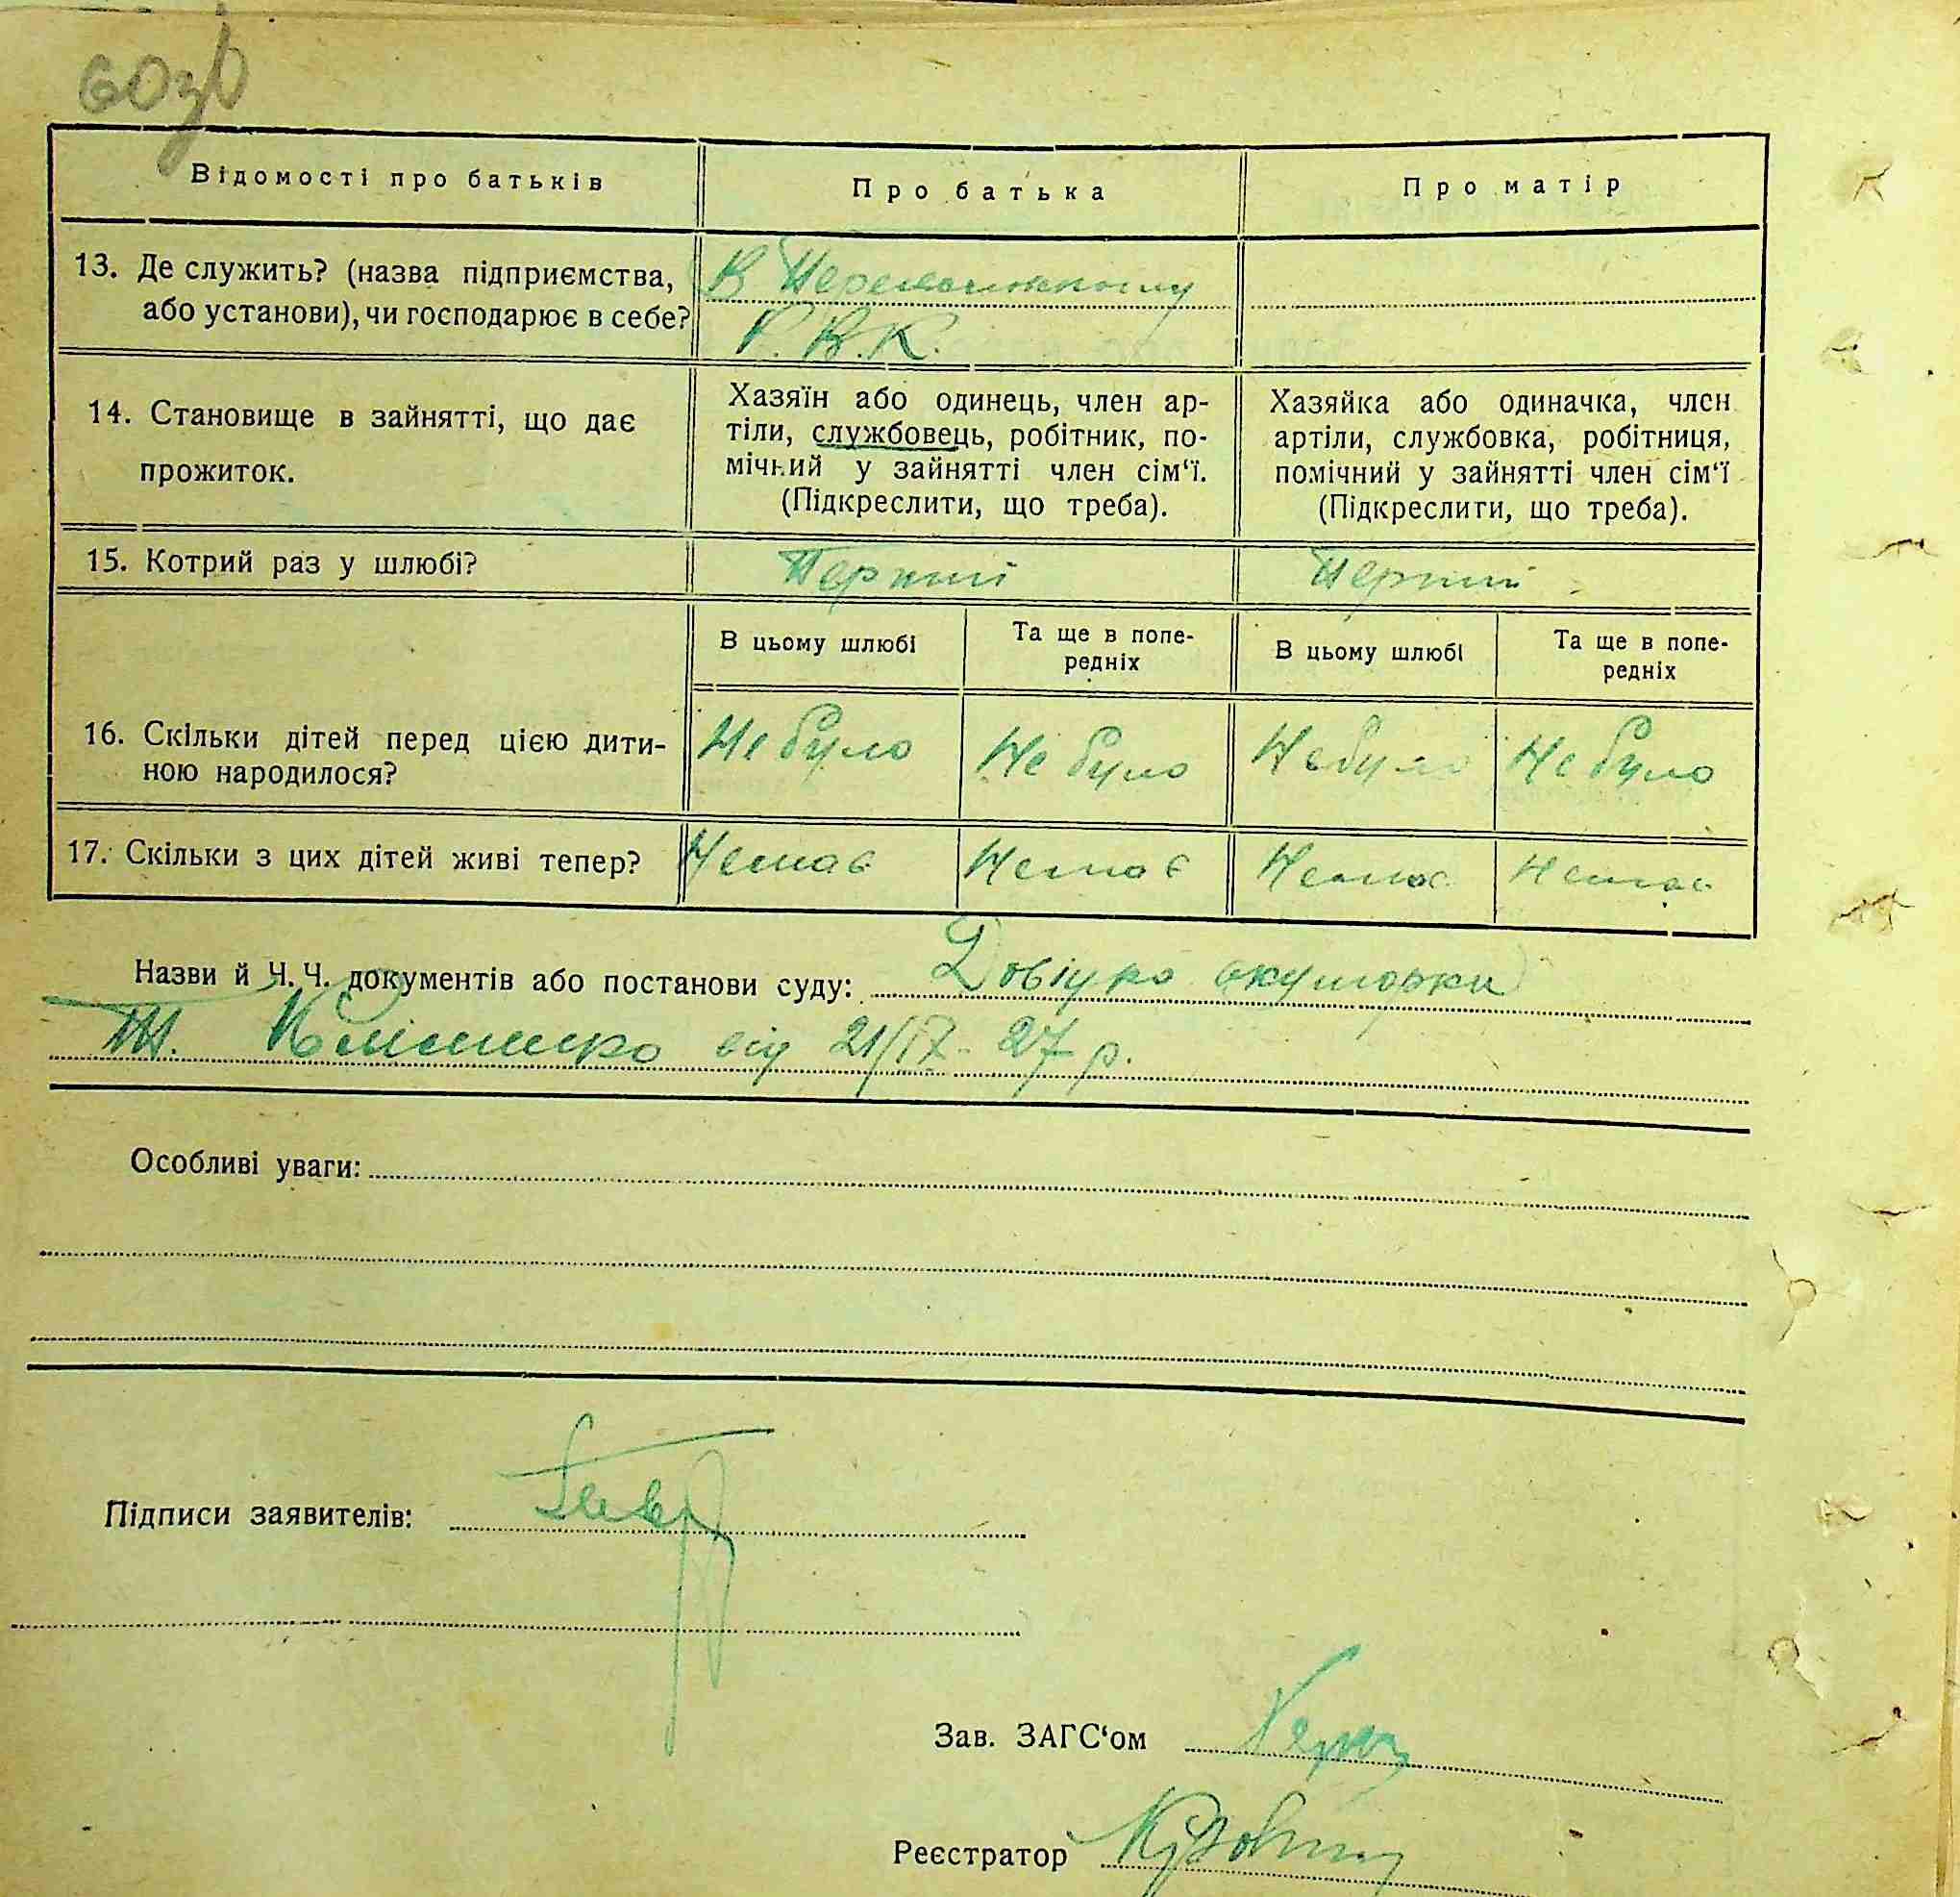 60зв
Відомості про батьків
Про батька
Про матір
13. Де служить? (назва підприємства,
або установи), чи господарює в себе?
В
Р. В. К.
14. Становище в зайнятті, що дає
прожиток.
Хазяїн або одинець, член ар-
тіли, службовець, робітник, по-
мічний у зайнятті член сім‘ї.
(Підкреслити, що треба).
Хазяйка або одиначка, член
артіли, службовка, робітниця,
помічний у зайнятті член сім‘ї
(Підкреслити, що треба).
15. Котрий раз у шлюбі?
Перший
Перший
В цьому шлюбі
Та ще в попе-
редніх
В цьому шлюбі
Та ще в попе-
редніх
16. Скільки дітей перед цією дити-
ною народилося?
Не було
Не було
Не було
Не було
17. Скільки з цих дітей живі тепер?
Немає
Немає
Немає
Немає
Назви й Ч. Ч. документів або постанови суду: Довідка акушерки
від 21/IX-27 р.
Особливі уваги:
Підписи заявителів:
Зав. ЗАГС‘ом
Реєстратор